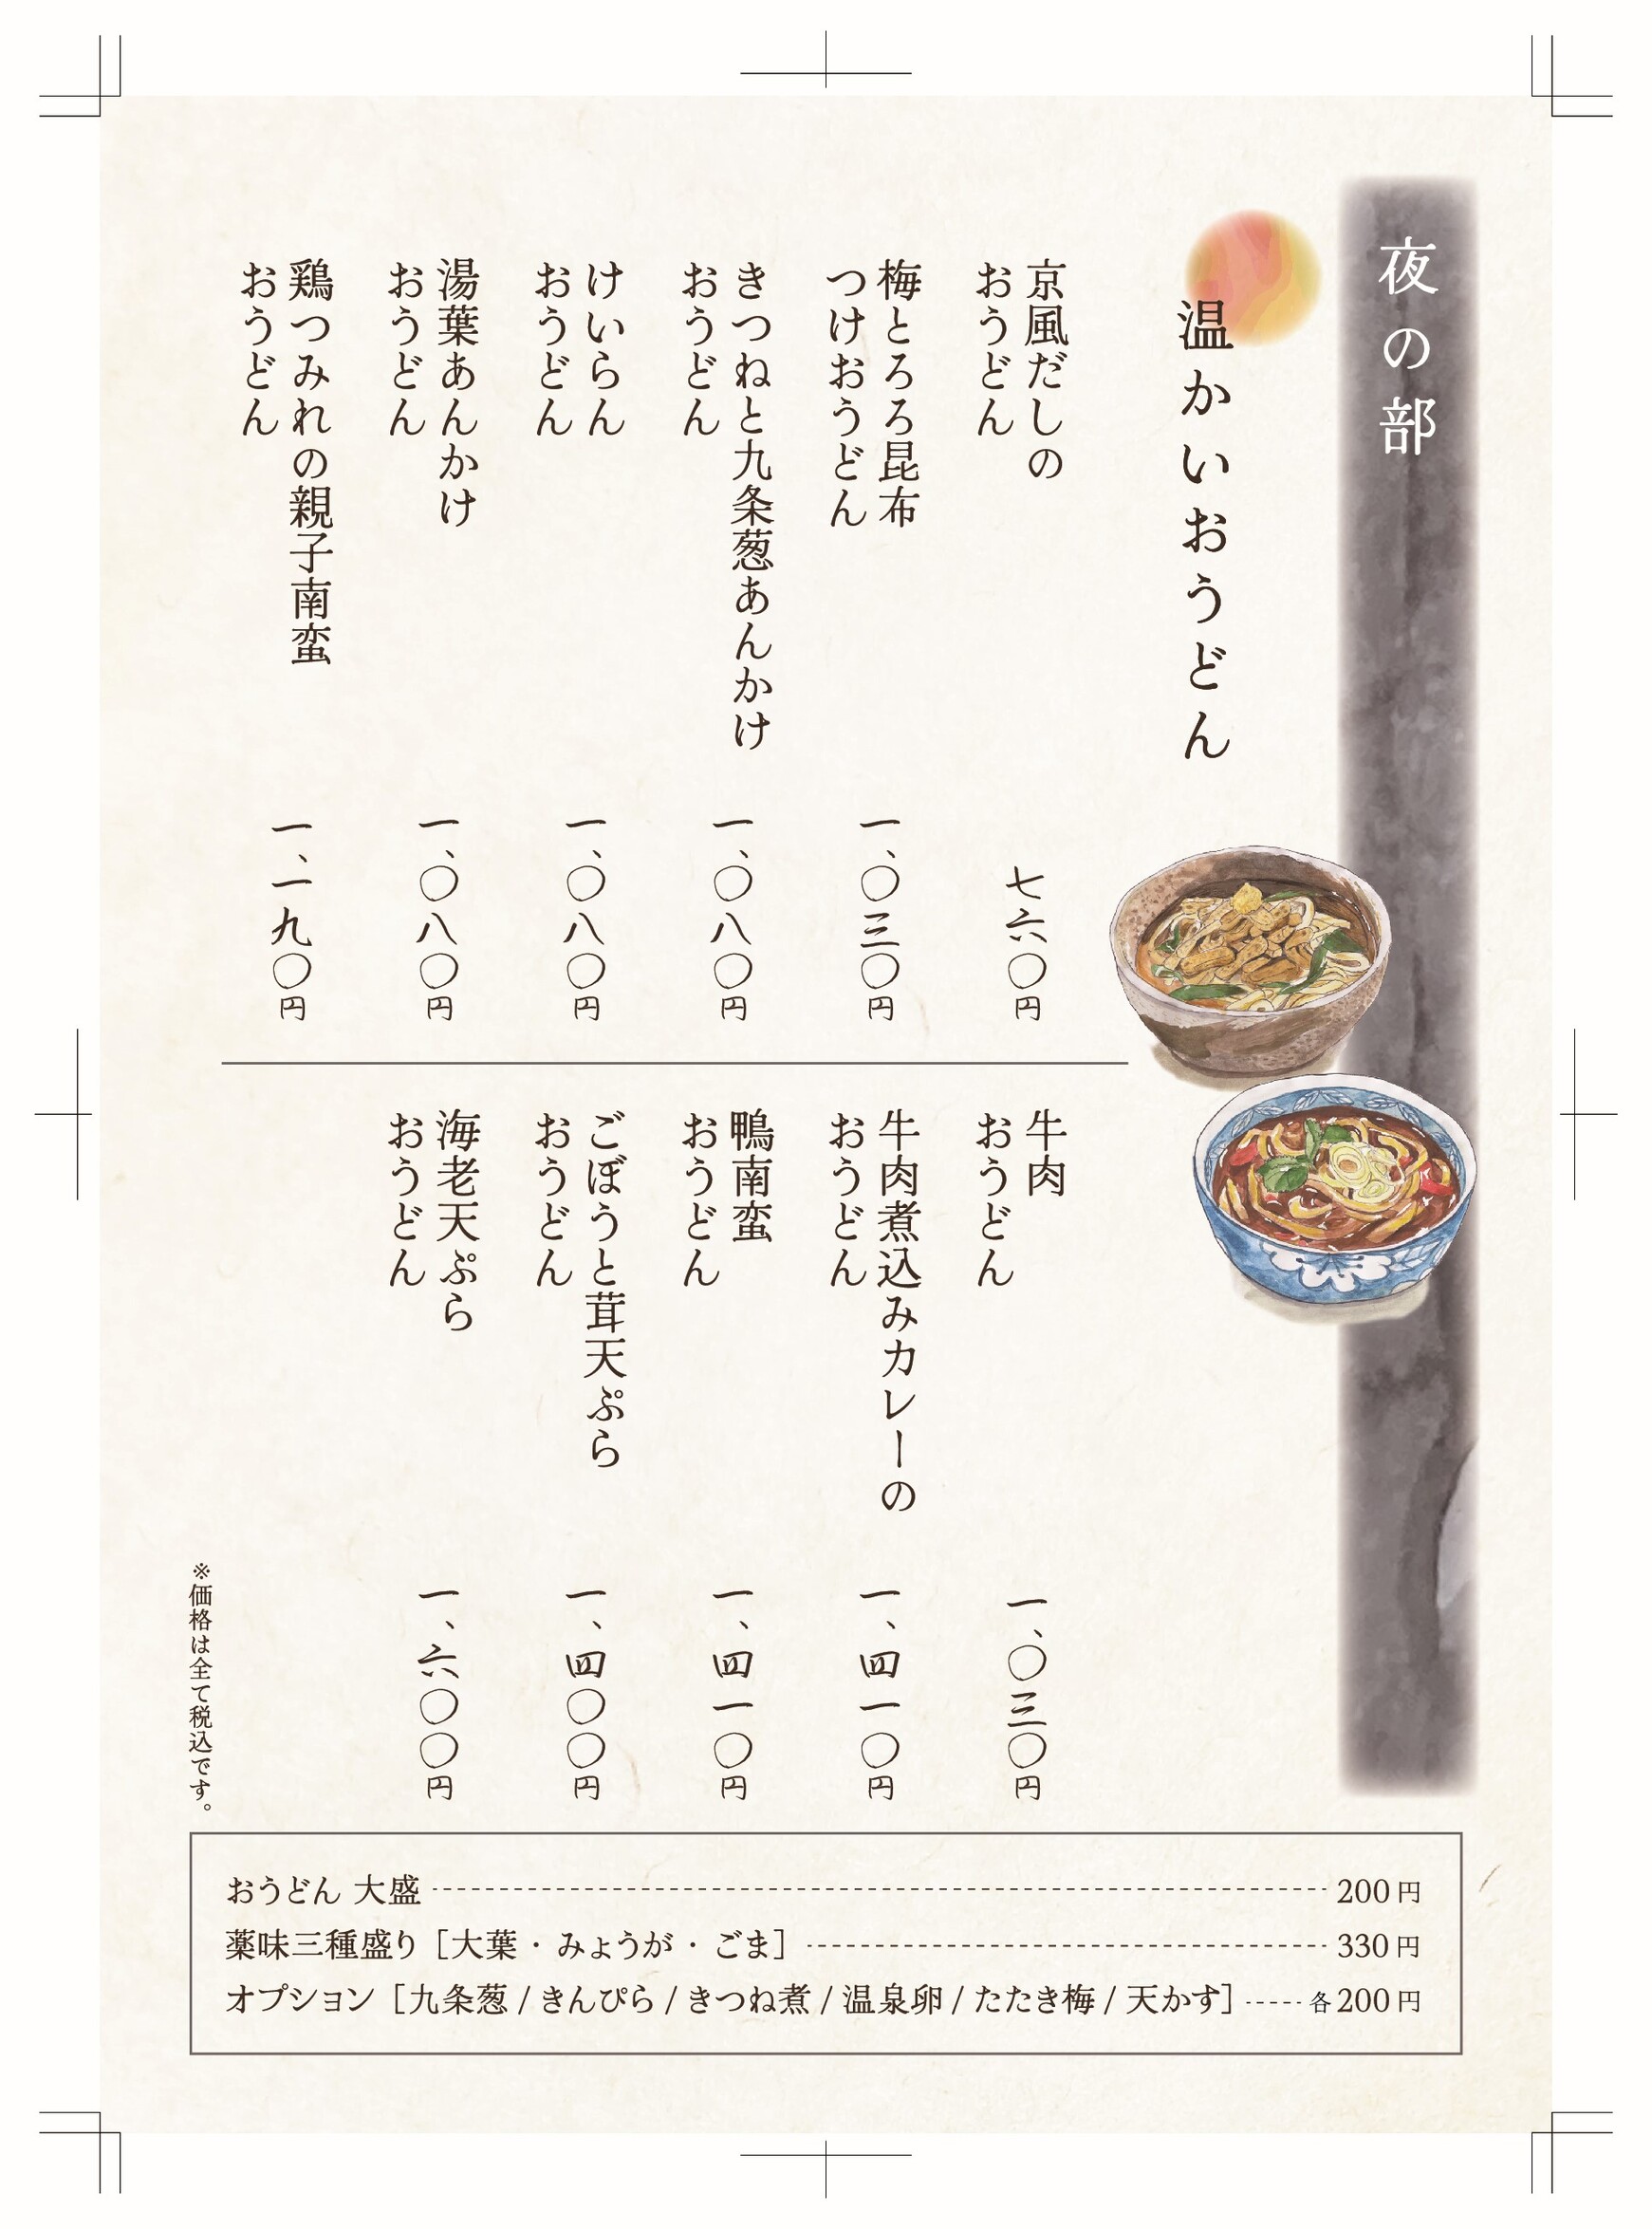 夜の部
温かいおうどん
京風だしの
おうどん
七六〇円
梅とろろ昆布
つけおうどん
一、〇三〇円
きつねと九条葱あんかけ
おうどん
一、〇八〇円
けいらん
おうどん
一、〇八〇円
湯葉あんかけ
おうどん
一、〇八〇円
鶏つみれの親子南蛮
おうどん
一、一九〇円
牛肉
おうどん
一、〇三〇円
牛肉煮込みカレーの
おうどん
一、四一〇円
鴨南蛮
おうどん
一、四一〇円
ごぼうと茸天ぷら
おうどん
一、四〇〇円
海老天ぷら
おうどん
一、六〇〇円
※価格は全て税込です。
おうどん 大盛 200円
薬味三種盛り［大葉・みょうが・ごま］ 330円
オプション［九条葱/きんぴら/きつね煮/温泉卵/たたき梅/天かす］ 各200円